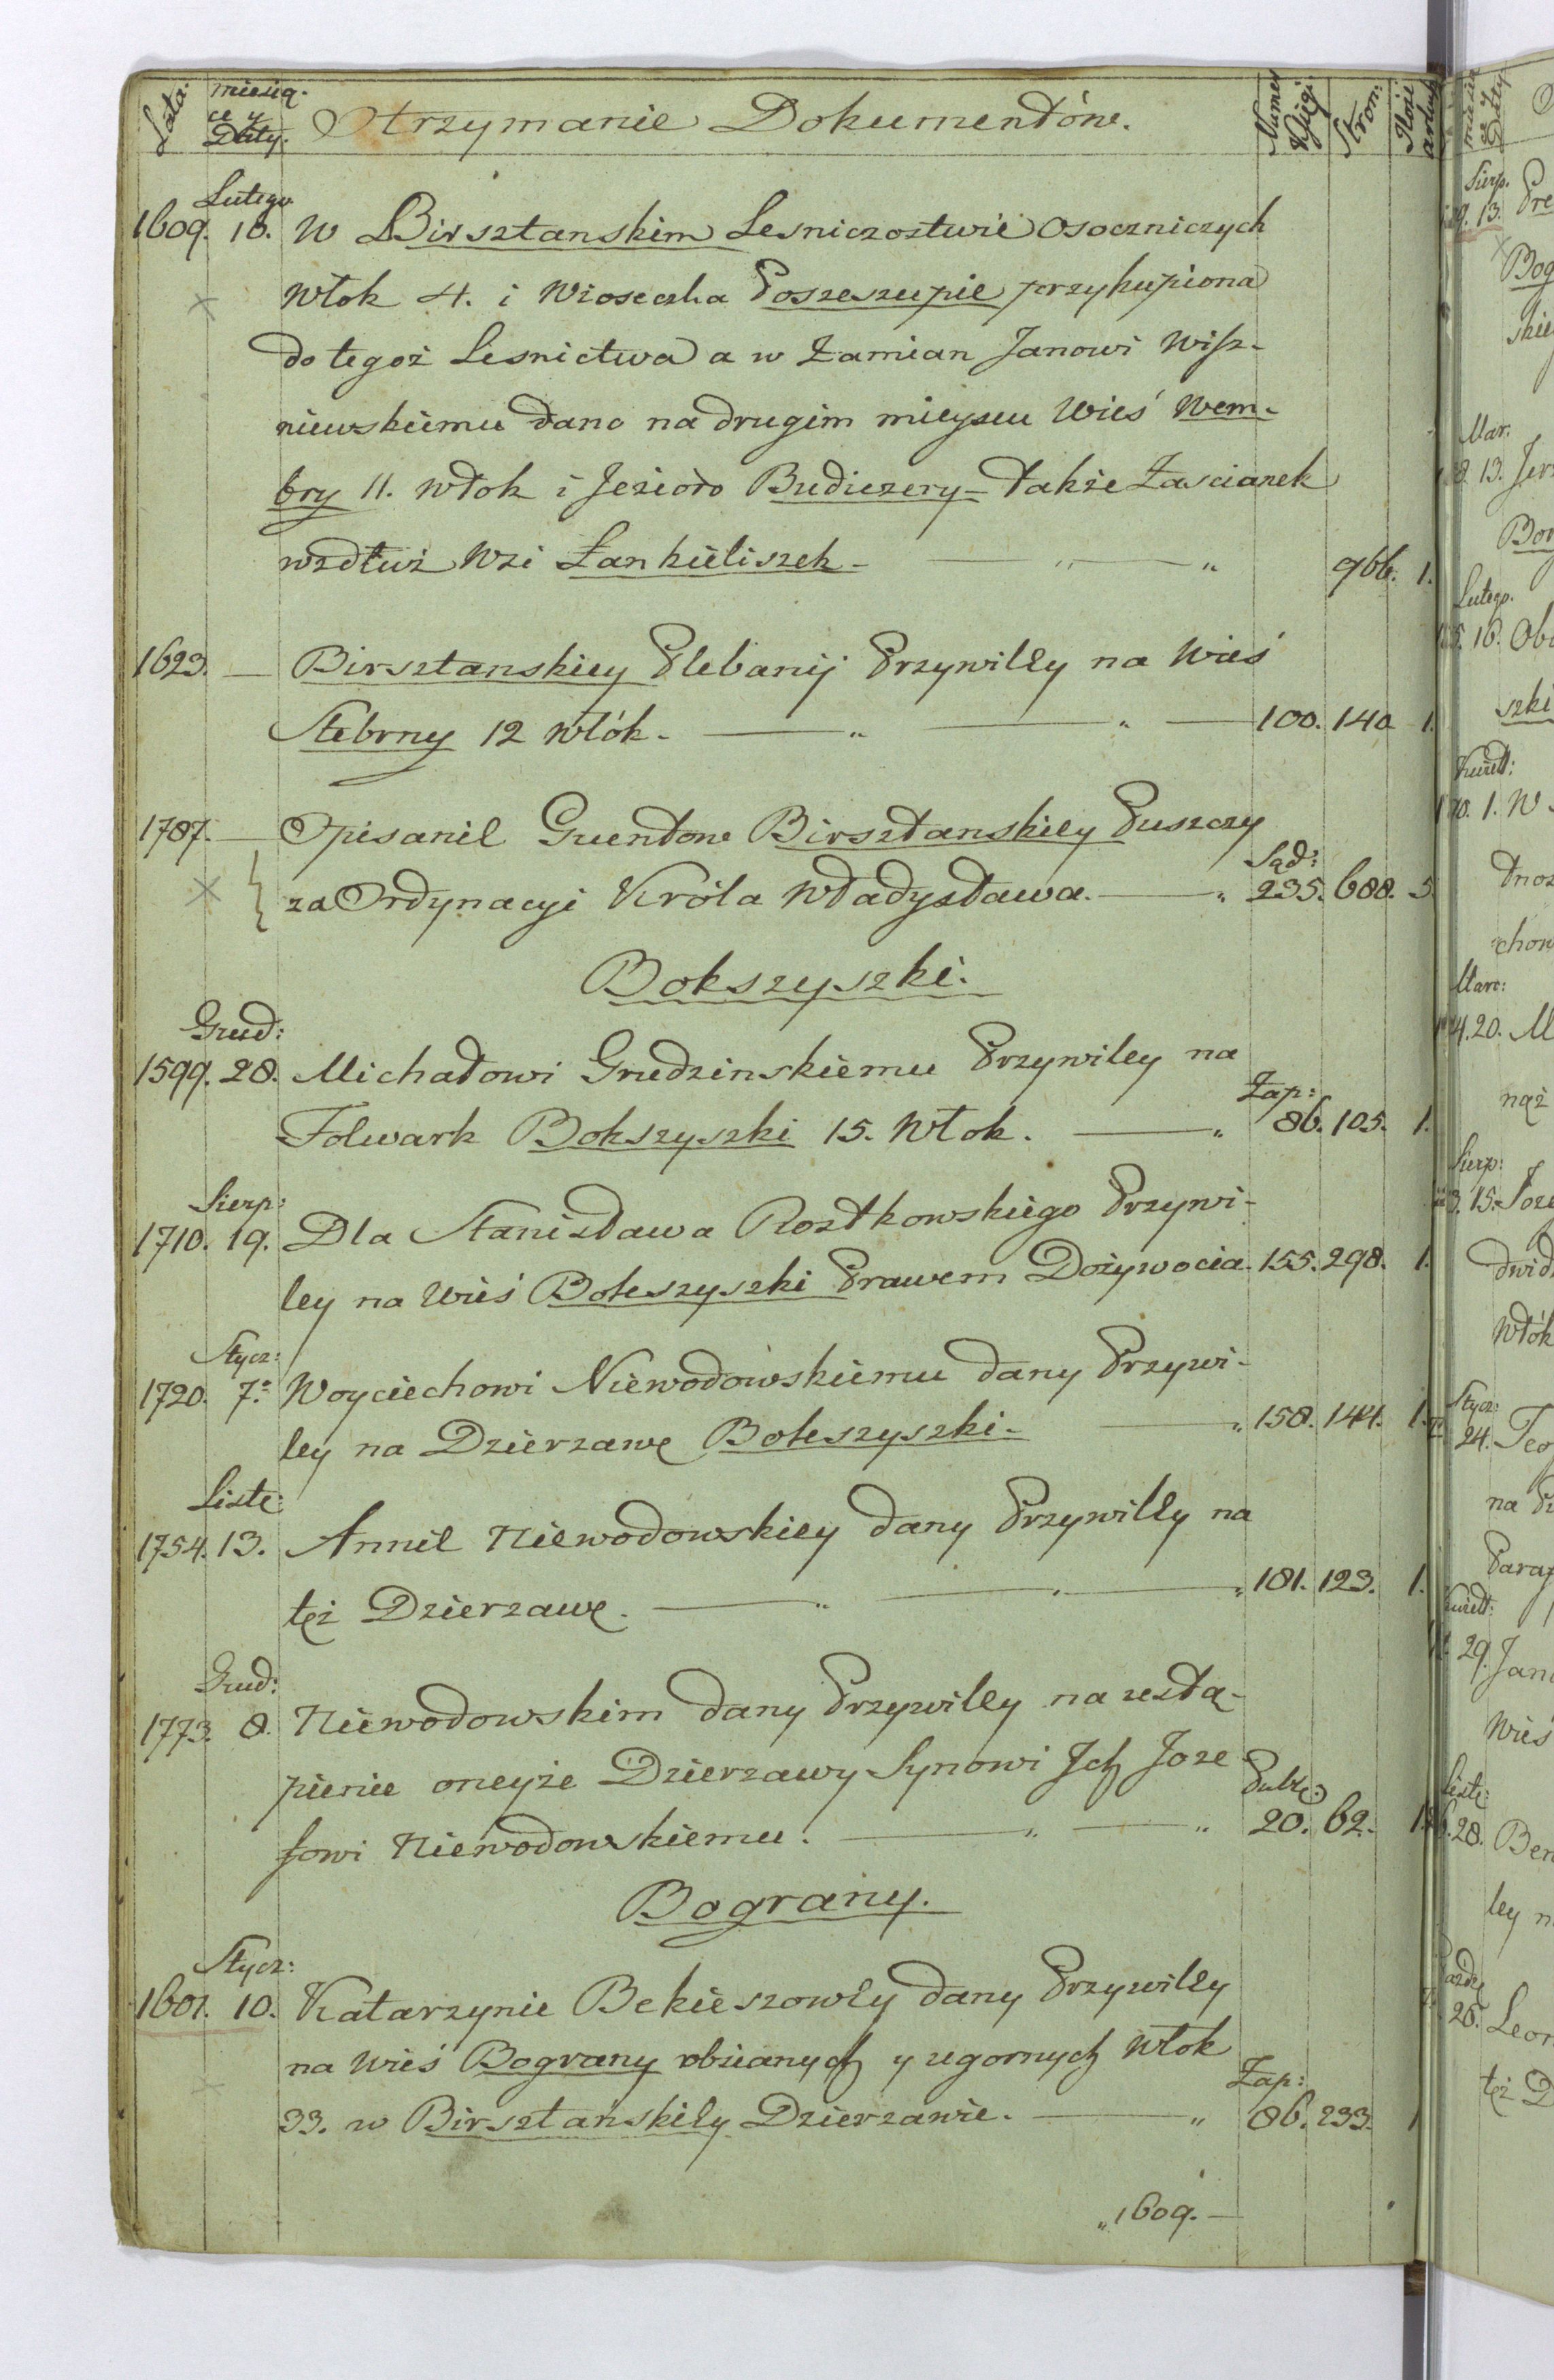 Lata miesiące y Daty. Otrzymanie Dokumentów. Numer Xsięgi Stron: Ilość arkusz
Lutego
1609. 18. w Birsztanskim Lesniczostwie Osoczniczych
włok 4. i Wioseczka Poszeszupie przykupiona
do tegoż Lesnictwa a w Zamian Janowi Wisz-
niewskiemu dano na drugim mieyscu Wieś Wem-
bry 11. włok i Jezioro Budiezery - także Zascianek
wzdłuż Wsi Łankieliszek - 966. 1.
1623. — Birsztanskiey Plebanij Przywiley na Wieś
Stebrny 12 włók. 100. 140 1.
1787. — Opisanie Gruntow Birsztanskiey Puszczy
Sąd:
za Ordynacyi Króla Władysława. 235. 688. 5.
Bokszyszki.
Grud:
1599. 28. Michałowi Grudzinskiemu Przywiley na
Zap:
Folwark Bokszyszki 15. Włok. 86. 105. 1.
Sierp:
1710. 19. Dla Stanisława Rostkowskiego Przywi-
ley na Wieś Boteszyszki Prawem Dożywocia. 155. 298. 1.
Stycz:
1720. 7. Woyciechowi Niewodowskiemu dany Przywi-
ley na Dzierzawę Boteszyszki - 158. 144. 1.
Listę:
1754. 13. Annie Niewodowskiey dany Przywiley na
tęż Dzierzawę. 181. 123. 1.
Grud:
1773. 8. Niewodowskim dany Przywiley na ustą-
pienie oneyże Dzierzawy Synowi Ich Joze
fowi Niewodowskiemu. 20. 62. 1.
Bograny.
Stycz:
1601. 10. Katarzynie Bekieszowey dany Przywiley
na Wieś Bograny y ugornych włok
Zap:
33. w Birsztańskiey Dzierzawie. 86. 233. 1
„1609. —